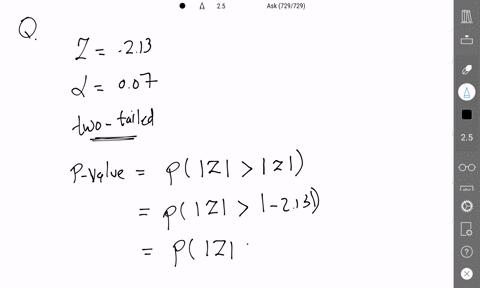 2.5 Ask (729/729)
Q.
Z = -2.13
α = 0.07
two-tailed
P-value = P( |Z| > |z| )
= P( |Z| > |-2.13| )
= P( |Z|
2.5